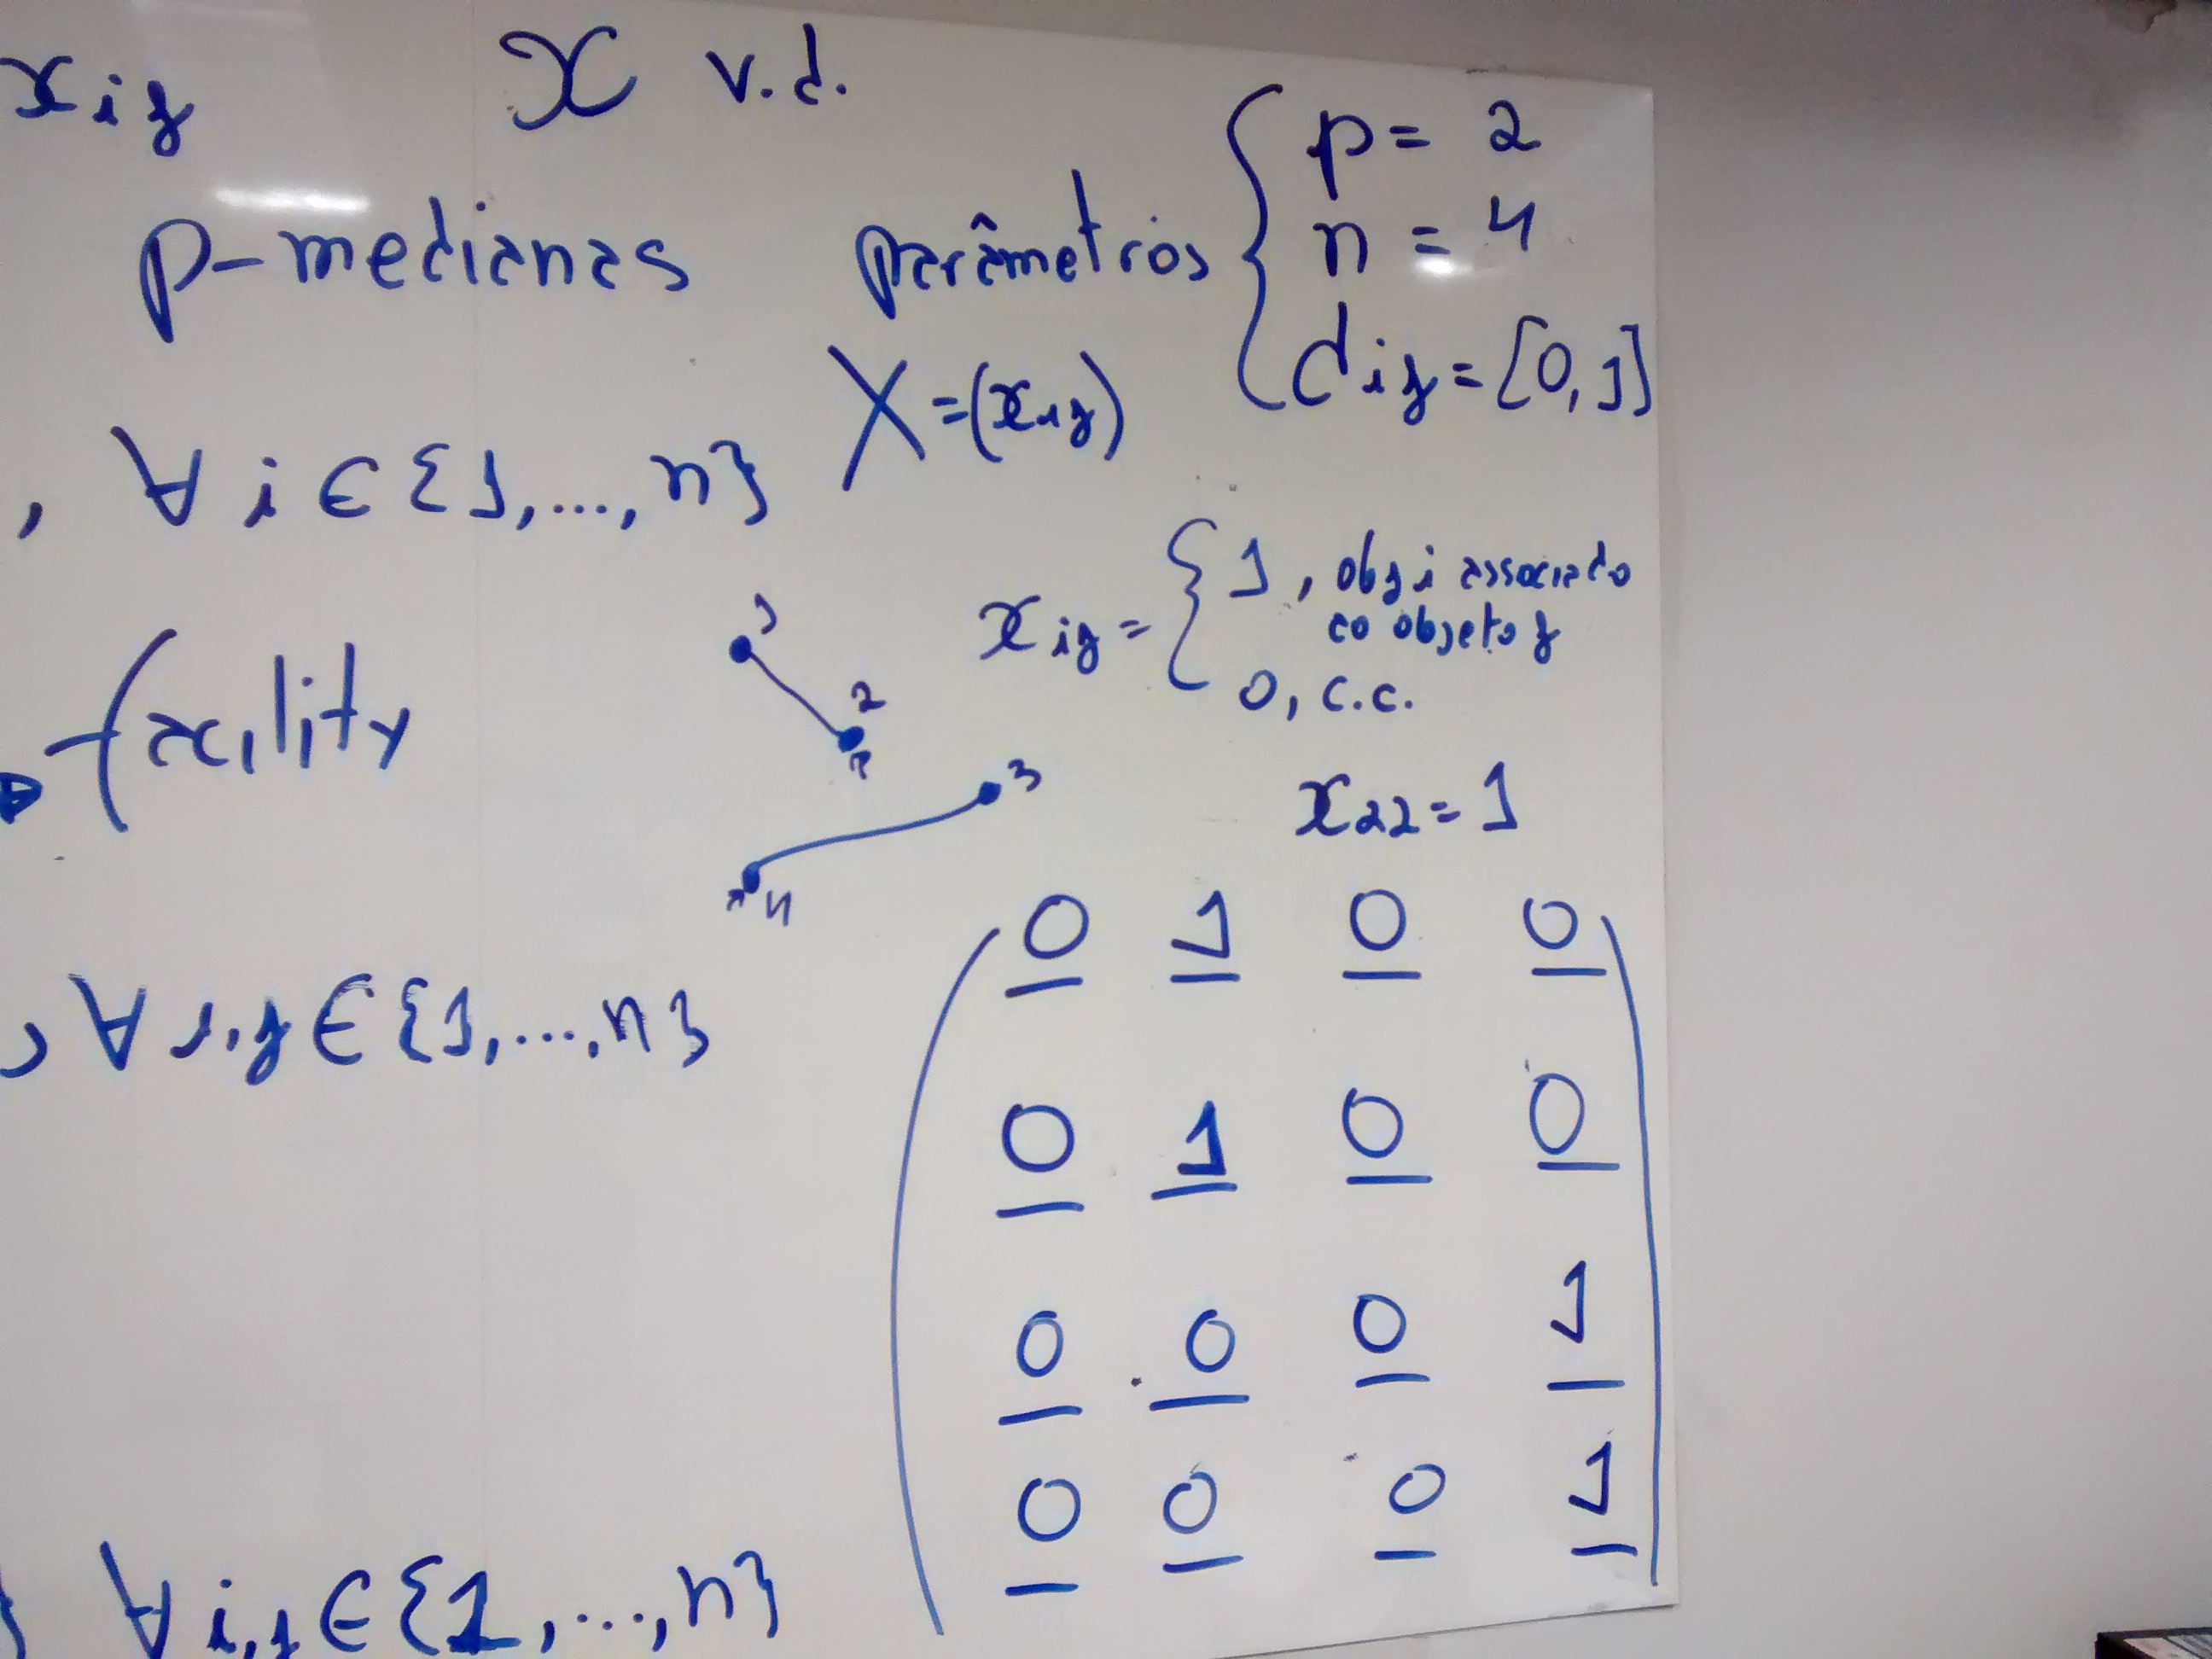 x_{ij} X v.d.
p-medianas parâmetros { p = 2
n = 4
d_{ij} = [0,1]
X = (x_{ij})
, ∀ i ∈ {1,...,n}
x_{ij} = { 1, obj i associado
ao objeto j
0, c.c.
facility
1
2
3
4
x_{22} = 1
, ∀ i,j ∈ {1,...,n}
0 1 0 0
0 1 0 0
0 0 0 1
0 0 0 1
∀ i,j ∈ {1,...,n}